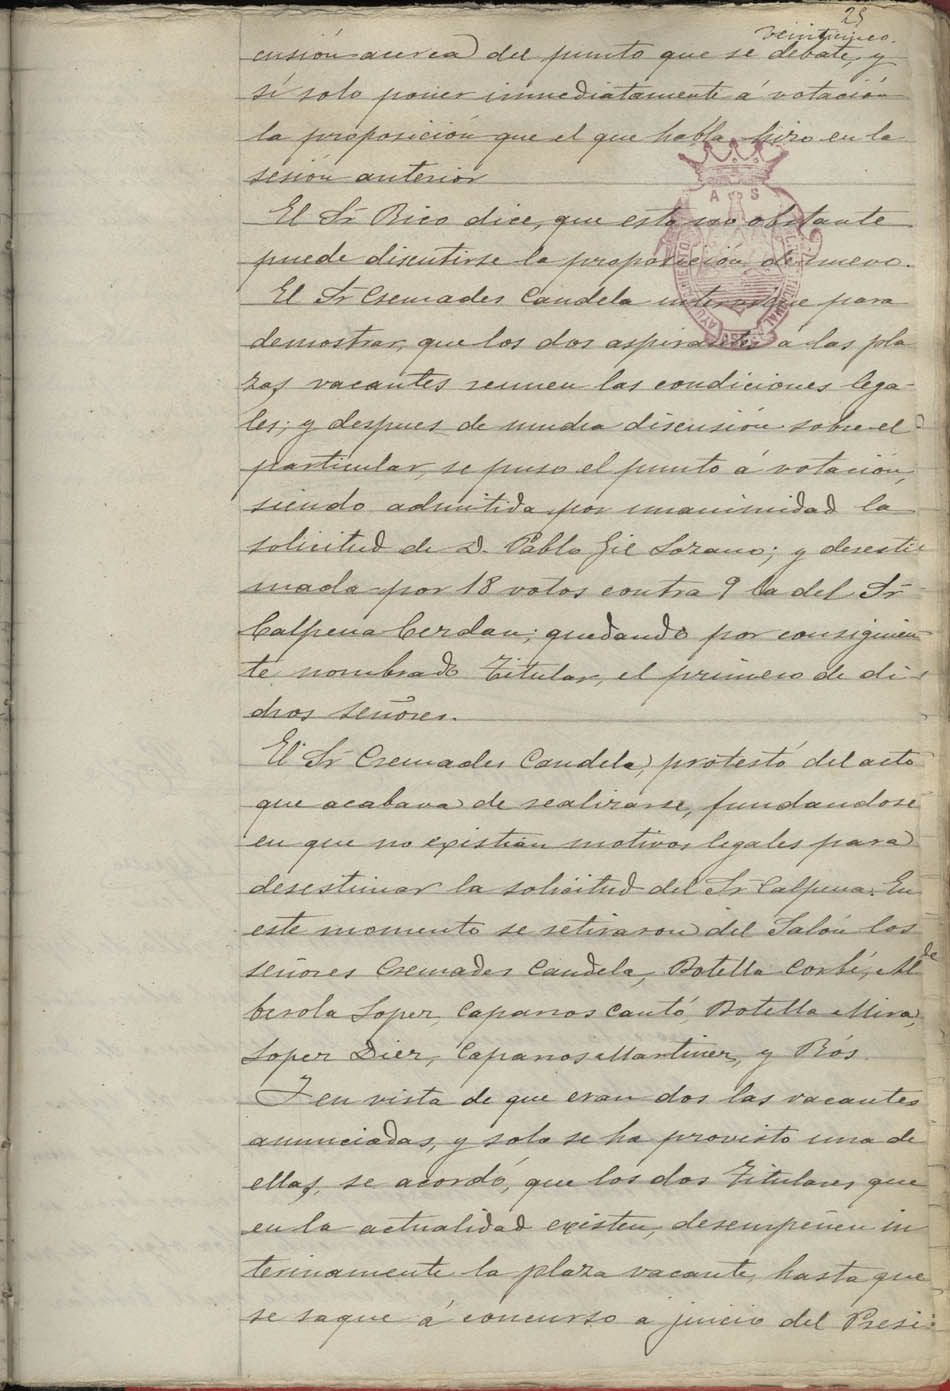 25
veinticinco.
cusión acerca del punto que se debate, y
sí solo poner inmediatamente á votación
la proposición que el que habla hizo en la
sesión anterior
El Sr Rico dice, que esto no obstante
puede discutirse la proposicion de nuevo.
El Sr Cremades Candela interviene para
demostrar, que los dos aspirantes á las pla
zas vacantes reunen las condiciones lega-
les; y despues de mucha discusión sobre el
particular, se puso el punto á votación,
siendo admitida por unanimidad la
solicitud de D. Pablo Gil Lozano; y desesti
mada por 18 votos contra 9 la del Sr
Calpena Cerdan; quedando por consiguien
te nombrado Titular, el primero de di-
chos señores.
El Sr Cremades Candela, protestó del acto
que acabava de realizarse, fundandose
en que no existian motivos legales para
desestimar la solicitud del Sr Calpena. En
este momento se retiraron del Salón los
señores Cremades Candela, Botella Corbí, Al
berola Lopez, Caparros Cantó, Botella Mira,
Lopez Diez, Caparros Martinez, y Rós.
Y en vista de que eran dos las vacantes
anunciadas, y solo se ha provisto una de
ellas, se acordó, que los dos Titulares que
en la actualidad existen, desempeñen in
terinamente la plaza vacante, hasta que
se saque á concurso a juicio del Presi-